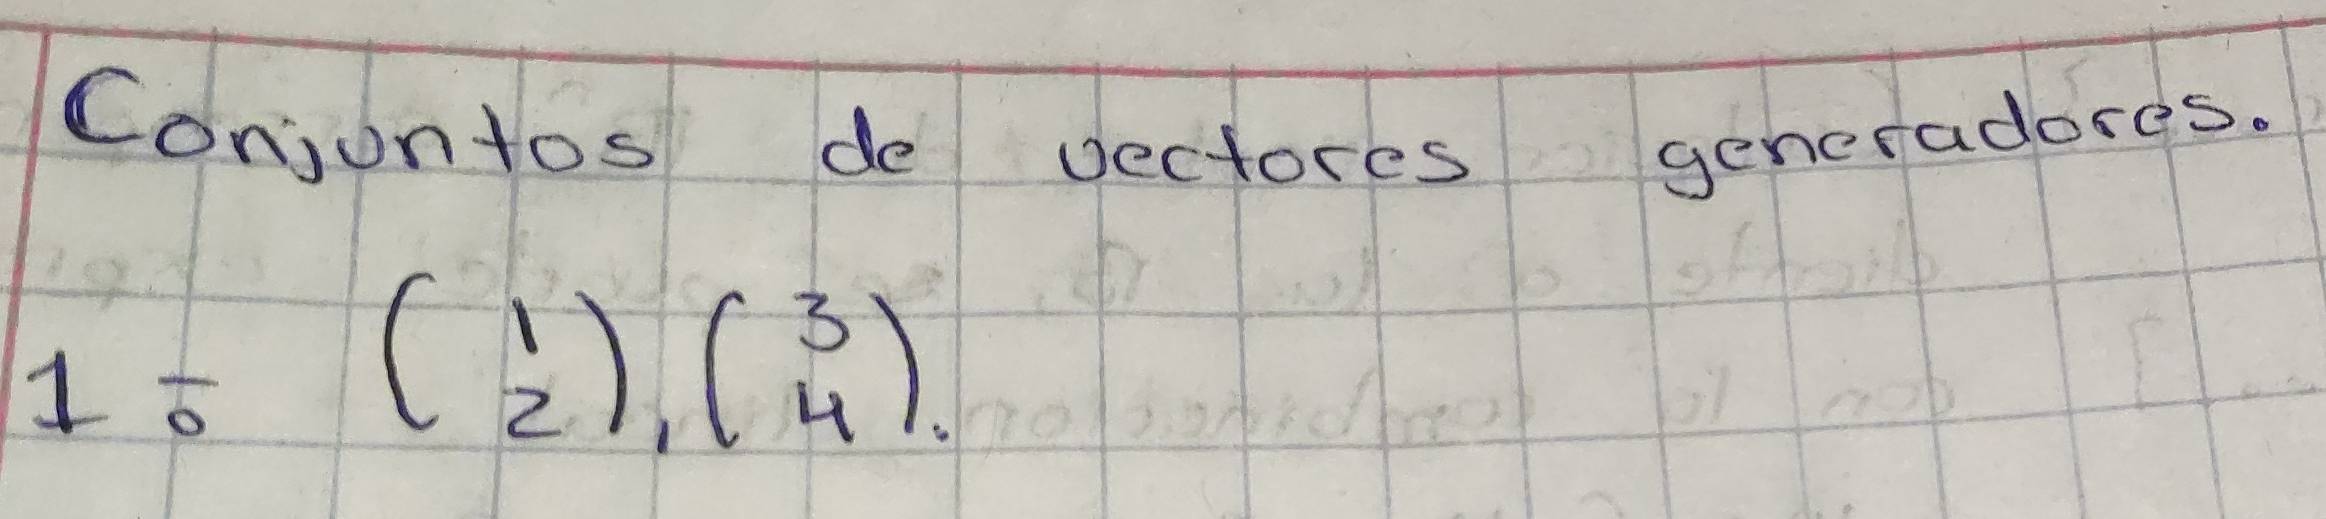 Conjuntos de vectores generadores.
1 ÷ (1 2), (3 4).